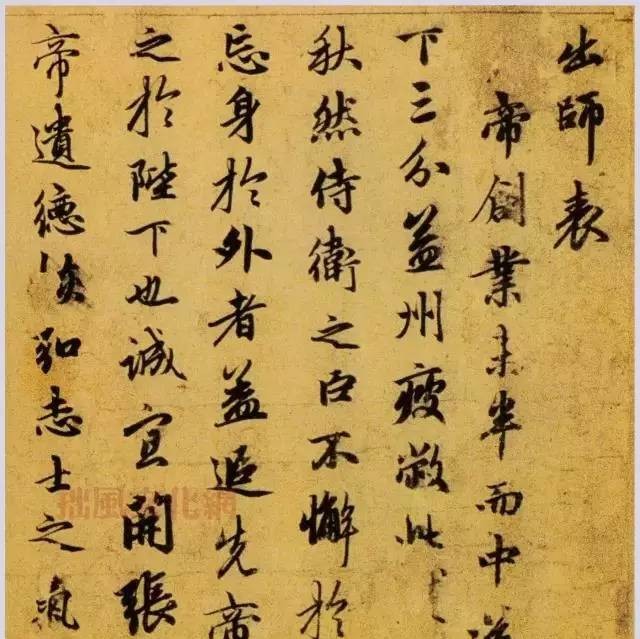 出師表
帝創業未半而中
下三分益州疲敝此
秋然侍衛之臣不懈於
忘身於外者蓋追先帝
之於陛下也誠宜開張
帝遺德恢弘志士之氣
拙風文化網